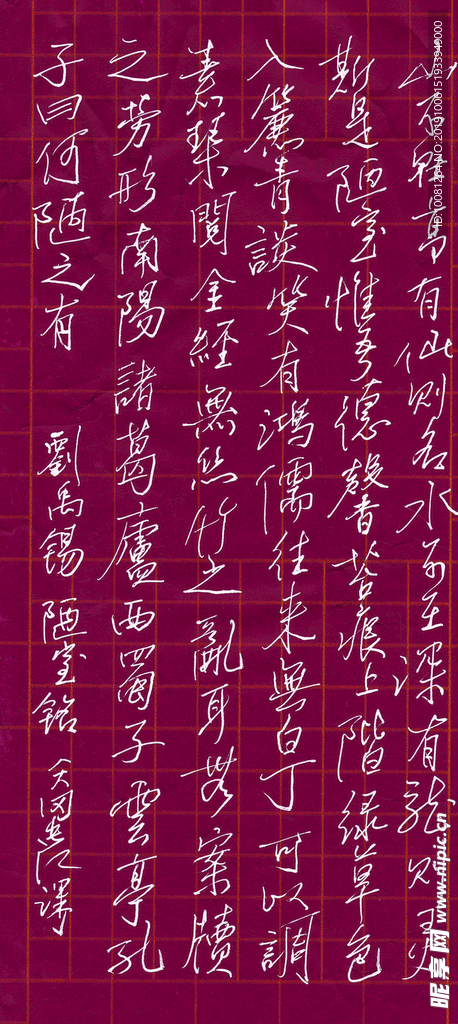 山不在高有仙则名水不在深有龍则灵
斯是陋室惟吾德馨苔痕上階緑草色
入簾青談笑有鴻儒往来無白丁可以調
素琴閲金經無丝竹之亂耳無案牘
之劳形南陽諸葛廬西蜀子雲亭孔
子曰何陋之有 劉禹錫 陋室銘
昵享网 www.nipic.cn